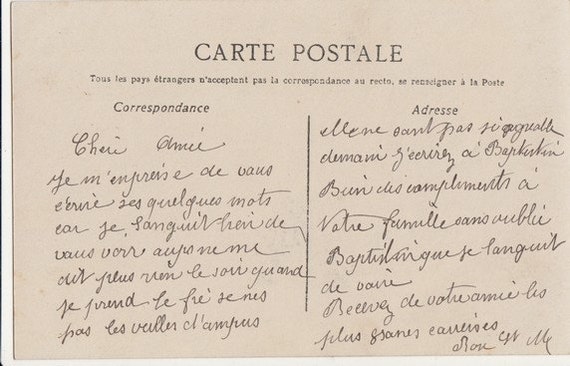 CARTE POSTALE
Tous les pays étrangers n'acceptent pas la correspondance au recto, se renseigner à la Poste
Correspondance
Cheri Amié
Je m'enpreise de vous
écrire ses quelques mots
car je languit bien de
vous voir
dit plus rien le soir quand
je prend le fré se nes
pas les veiller d'ampus
Adresse
Elle ne sont pas si
demain j'écrirez à Baptistin
Bien des compliments à
Votre famille sans oublié
Baptistin que je languit
de voire
Recevez de votre amie les
plus granes